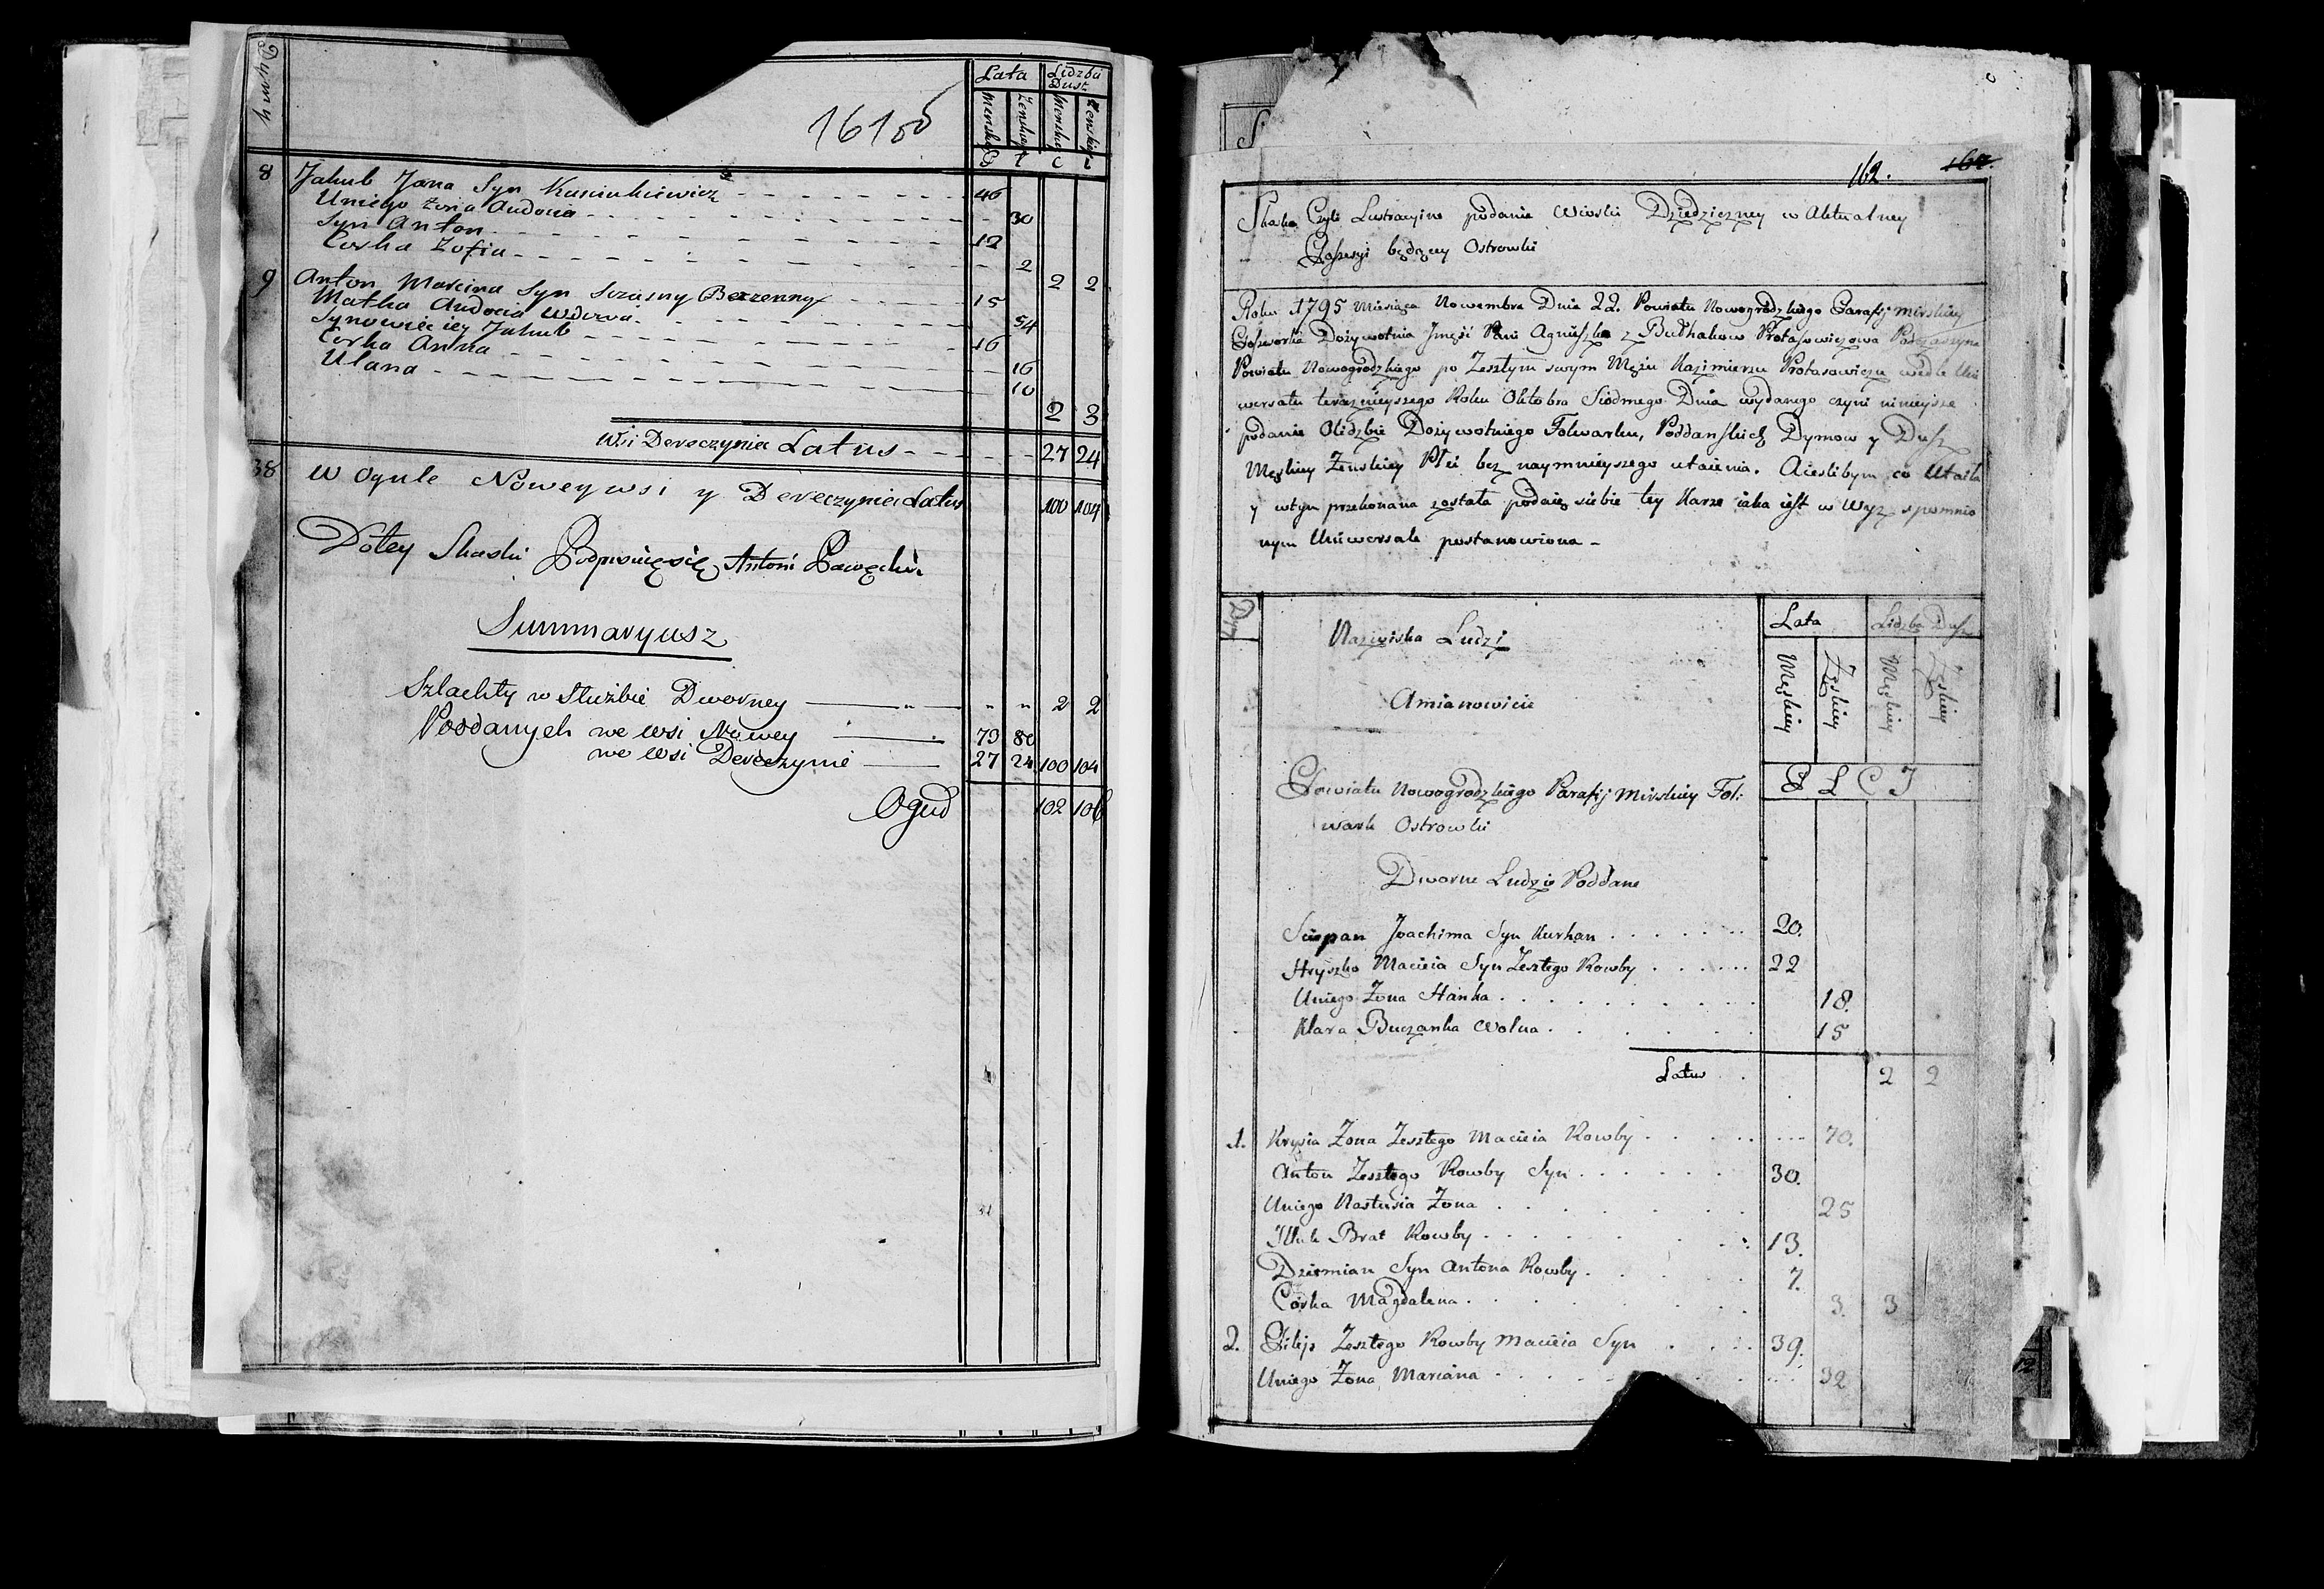 Dymy
Lata Lidzba Dusz
Menska Zenska Menska Zenska
P L C
161 об
8 Jakub Jana Syn Kusciukiewicz 46
Uniego żona Audocia 30
Syn Anton 12
Corka Zofia 2
2 2
9 Anton Marcina Syn Sczasny Berzenny 15
Matka Audocia Wdowa 54
Synowiec iey Jakub 16
Corka Anna 16
Ulana 10
2 3
Wsi Dereczynia Latus 27 24
38 W Ogule Nowey wsi y Dereczynia Latus 100 104
Do tey Skaski Podpisuię się Antoni
Summaryusz
Szlachty w Służbie Dworney " " 2 2
Poddanych we wsi Nowey 73 80
we wsi Dereczynie 27 24 100 104
Oguł 102 106
162. 162.
Skaska Czyli Lustracyine podanie Wioski Dziedziczney w Aktualney
Possesyi będącey Ostrowki
Roku 1795 Miesiąca Nowembra Dnia 22. Powiatu Nowogrodzkiego Parafij mirskiey
Dożywotnia Jmość Pani Agniszka z Bułhakow Protasowiczowa
Powiatu Nowogrodzkiego po Zeszłym swym Mężu Kazimierzu Protasowiczu wedle Uni
wersału teraznieyszego Roku Oktobra Siodmego Dnia wydanego czyni ninieysze
podanie Olidzbie Dożywotniego Folwarku, Poddanskich Dymow y Dusz
Męskiey Zenskiey Płci bez naymnieyszego utaienia. Aieslibym co Utaiła
y wtym przekonana została podaię siebie tey Karze iaka iest w Wyz spomnio
nym Uniwersale postanowiona -
Dym
Nazwiska Ludzi
Amianowicie
Lata Lidzba Dusz
Męskiey Żęskiey Męskiey Żęskiey
P L C J
Powiatu Nowogrodzkiego Parafij Mirskiey Fol:
wark Ostrowki
Dworne Ludzie Poddane
Sciepan Joachima Syn Kurhan 20.
Hryszko Macieia Syn Zeszłego Rowby 22
Uniego Żona Hanka 18.
Klara Buczanka Wolna 15
Latus 2 2
1. Krysia Żona Zeszłego Macieia Rowby 70.
Anton Zeszłego Rowby Syn 30.
Uniego Nastusia Żona 25
Illuk Brat Rowby 13.
Dziemian Syn Antona Rowby 7.
Corka Magdalena 3. 3
2. Filip Zeszłego Rowby Macieia Syn 39.
Uniego Żona Mariana 32